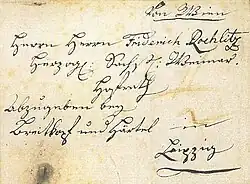 Von Wien
Herrn Herrn Friederich Rochlitz
Herzogl: Sachs: Weimar:
Hofrath
Abzugeben bey
Breitkopf und Härtel in
Leipzig